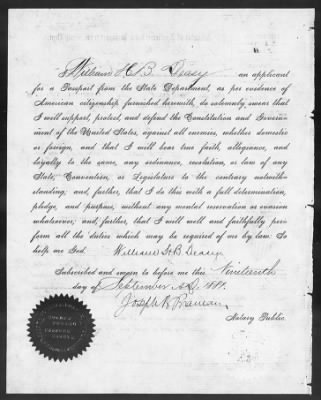 I William H. B. Deasy an applicant
for a Passport from the State Department, as per evidence of
American citizenship furnished herewith, do solemnly swear that
I will support, protect, and defend the Constitution and Govern-
ment of the United States, against all enemies, whether domestic
or foreign, and that I will bear true faith, allegiance, and
loyalty to the same, any ordinance, resolution, or law of any
State, Convention, or Legislature to the contrary notwith-
standing; and, further, that I do this with a full determination,
pledge, and purpose, without any mental reservation or evasion
whatsoever; and, further, that I will well and faithfully per-
form all the duties which may be required of me by law: So
help me God. William H. B. Deasy
Subscribed and sworn to before me this Nineteenth
day of September A.D. 1881.
Joseph B. Braman
Notary Public